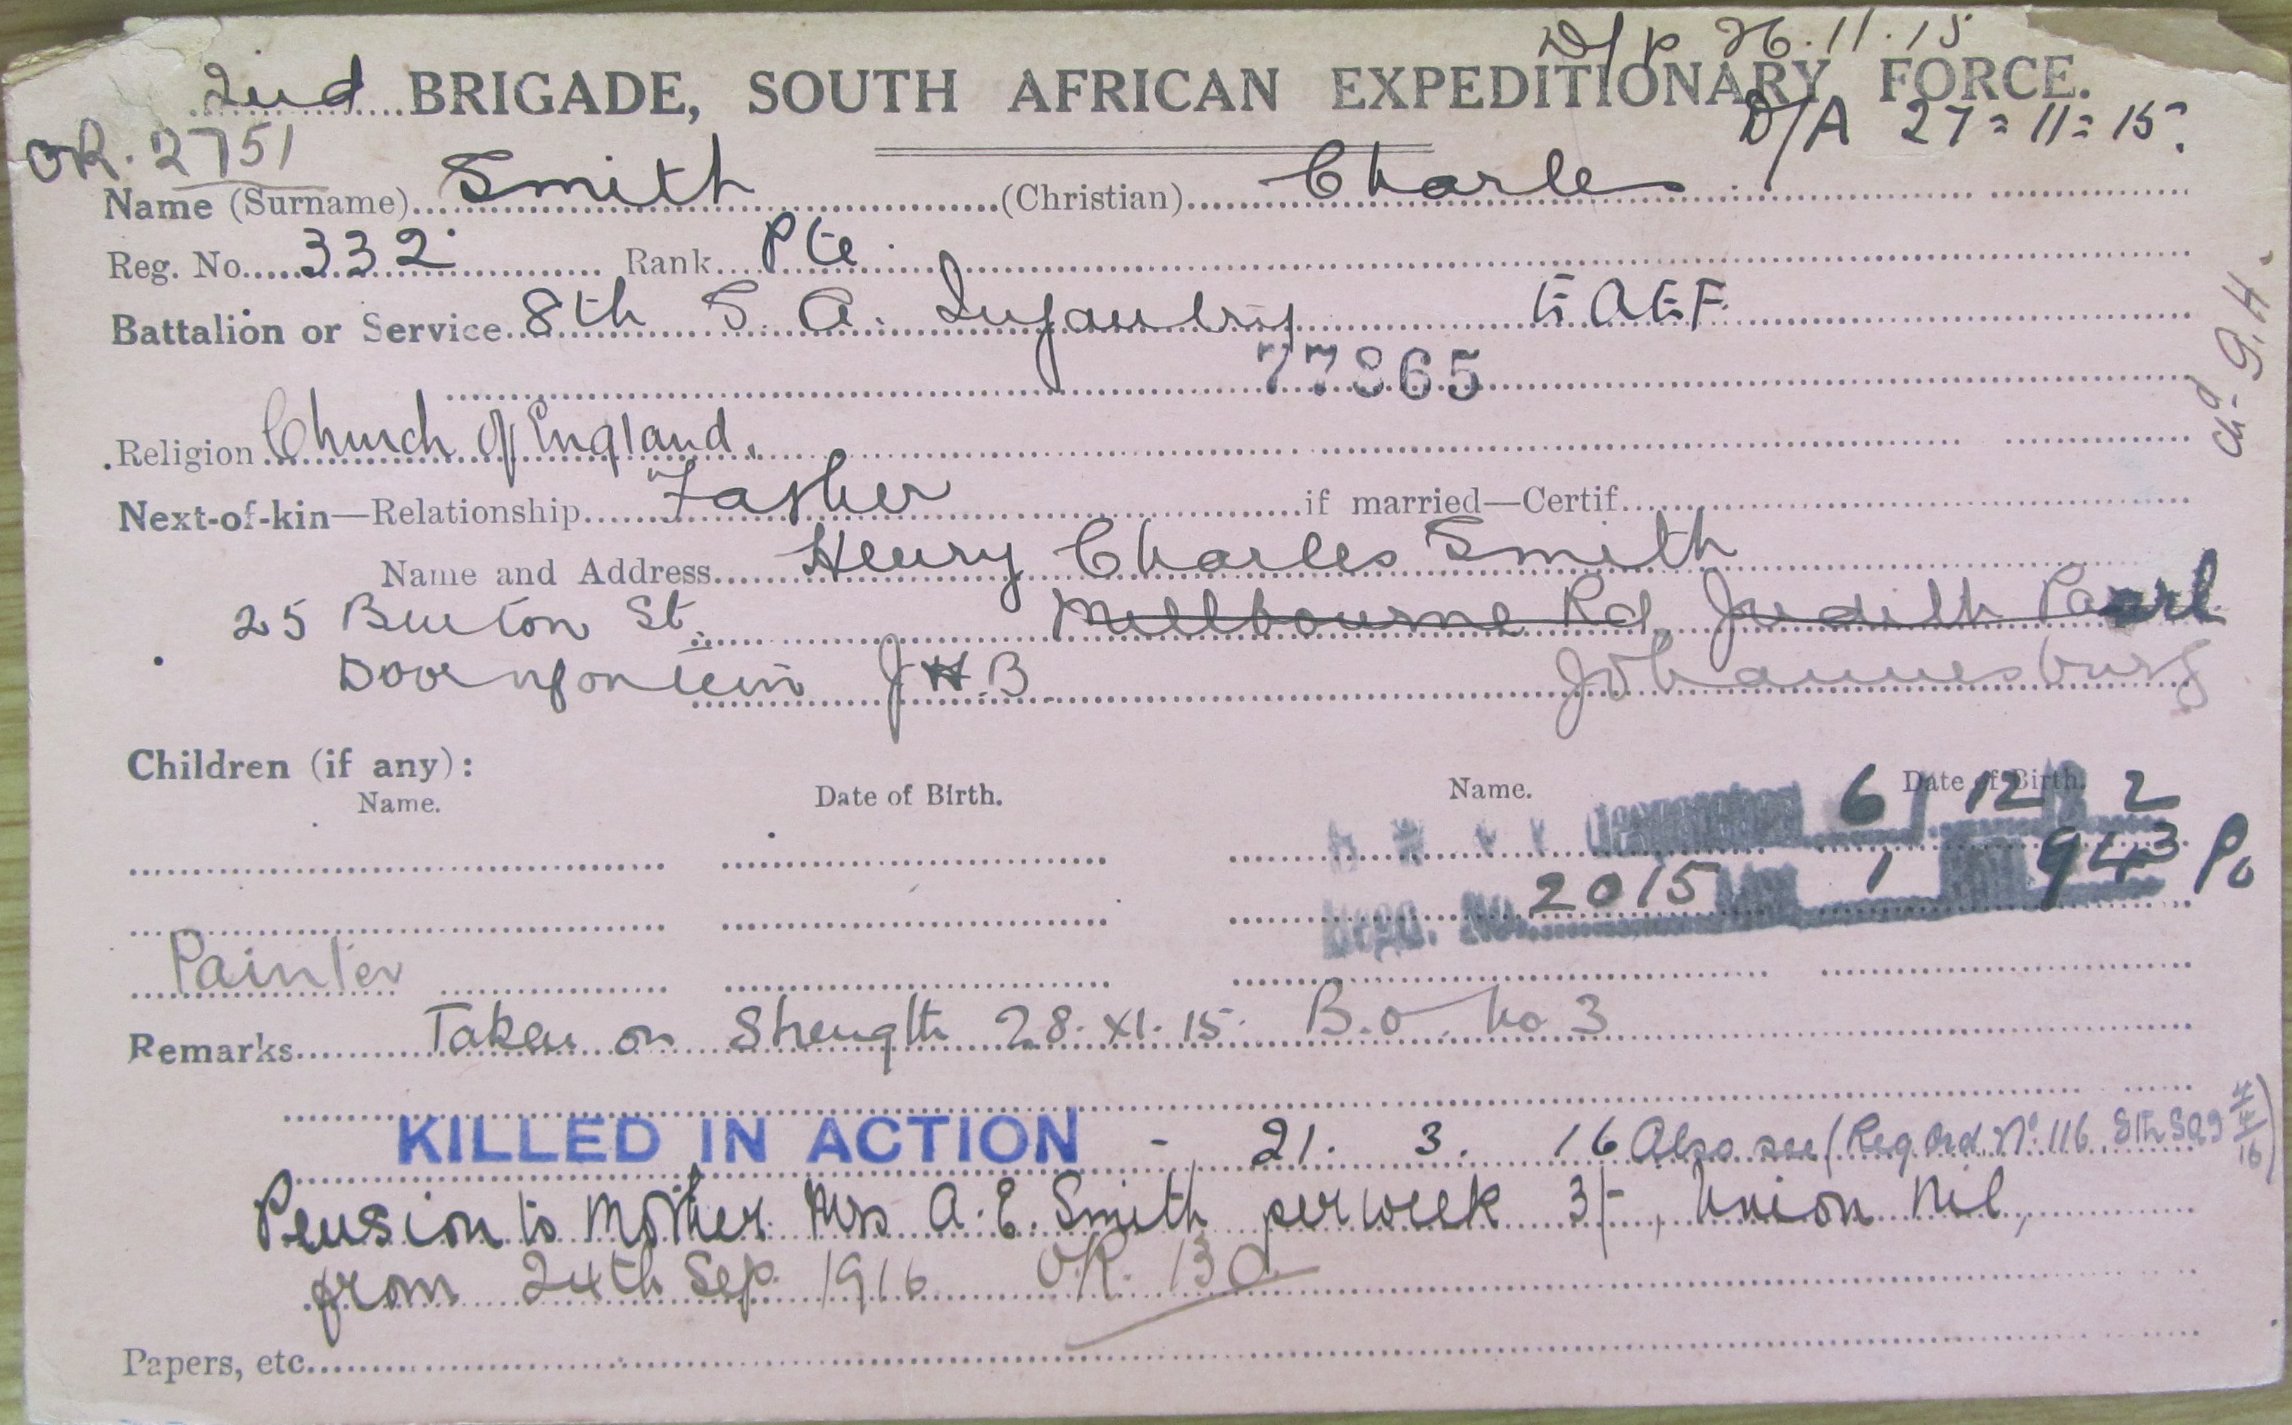 D/P 26.11.15
2nd BRIGADE, SOUTH AFRICAN EXPEDITIONARY FORCE.
D/A 27=11=15.
OR. 2751
Name (Surname) Smith (Christian) Charles
Reg. No. 332 Rank Pte
Battalion or Service 8th S. A. Infantry E A E F.
77865
Religion Church of England.
Next-of-kin—Relationship Father if married—Certif.
Name and Address Henry Charles Smith
25 Burton St. Mellbourne Rd, Judith Paarl
Doornfontein J.H.B. Johannesburg
Children (if any):
Name. Date of Birth. Name. Date of Birth.
6 12 2
2015 1 943 Po
Painter
Remarks Taken on Strength 28.XI.15. B.O. No 3
KILLED IN ACTION - 21. 3. 16 Also see (Reg Ord. No. 116 8th SAI 4/4/16)
Pension to Mother Mrs A. E. Smith per week 3/-, Union Nil,
from 24th Sep. 1916 O.R. 130
Papers, etc.
ch'd G.H.